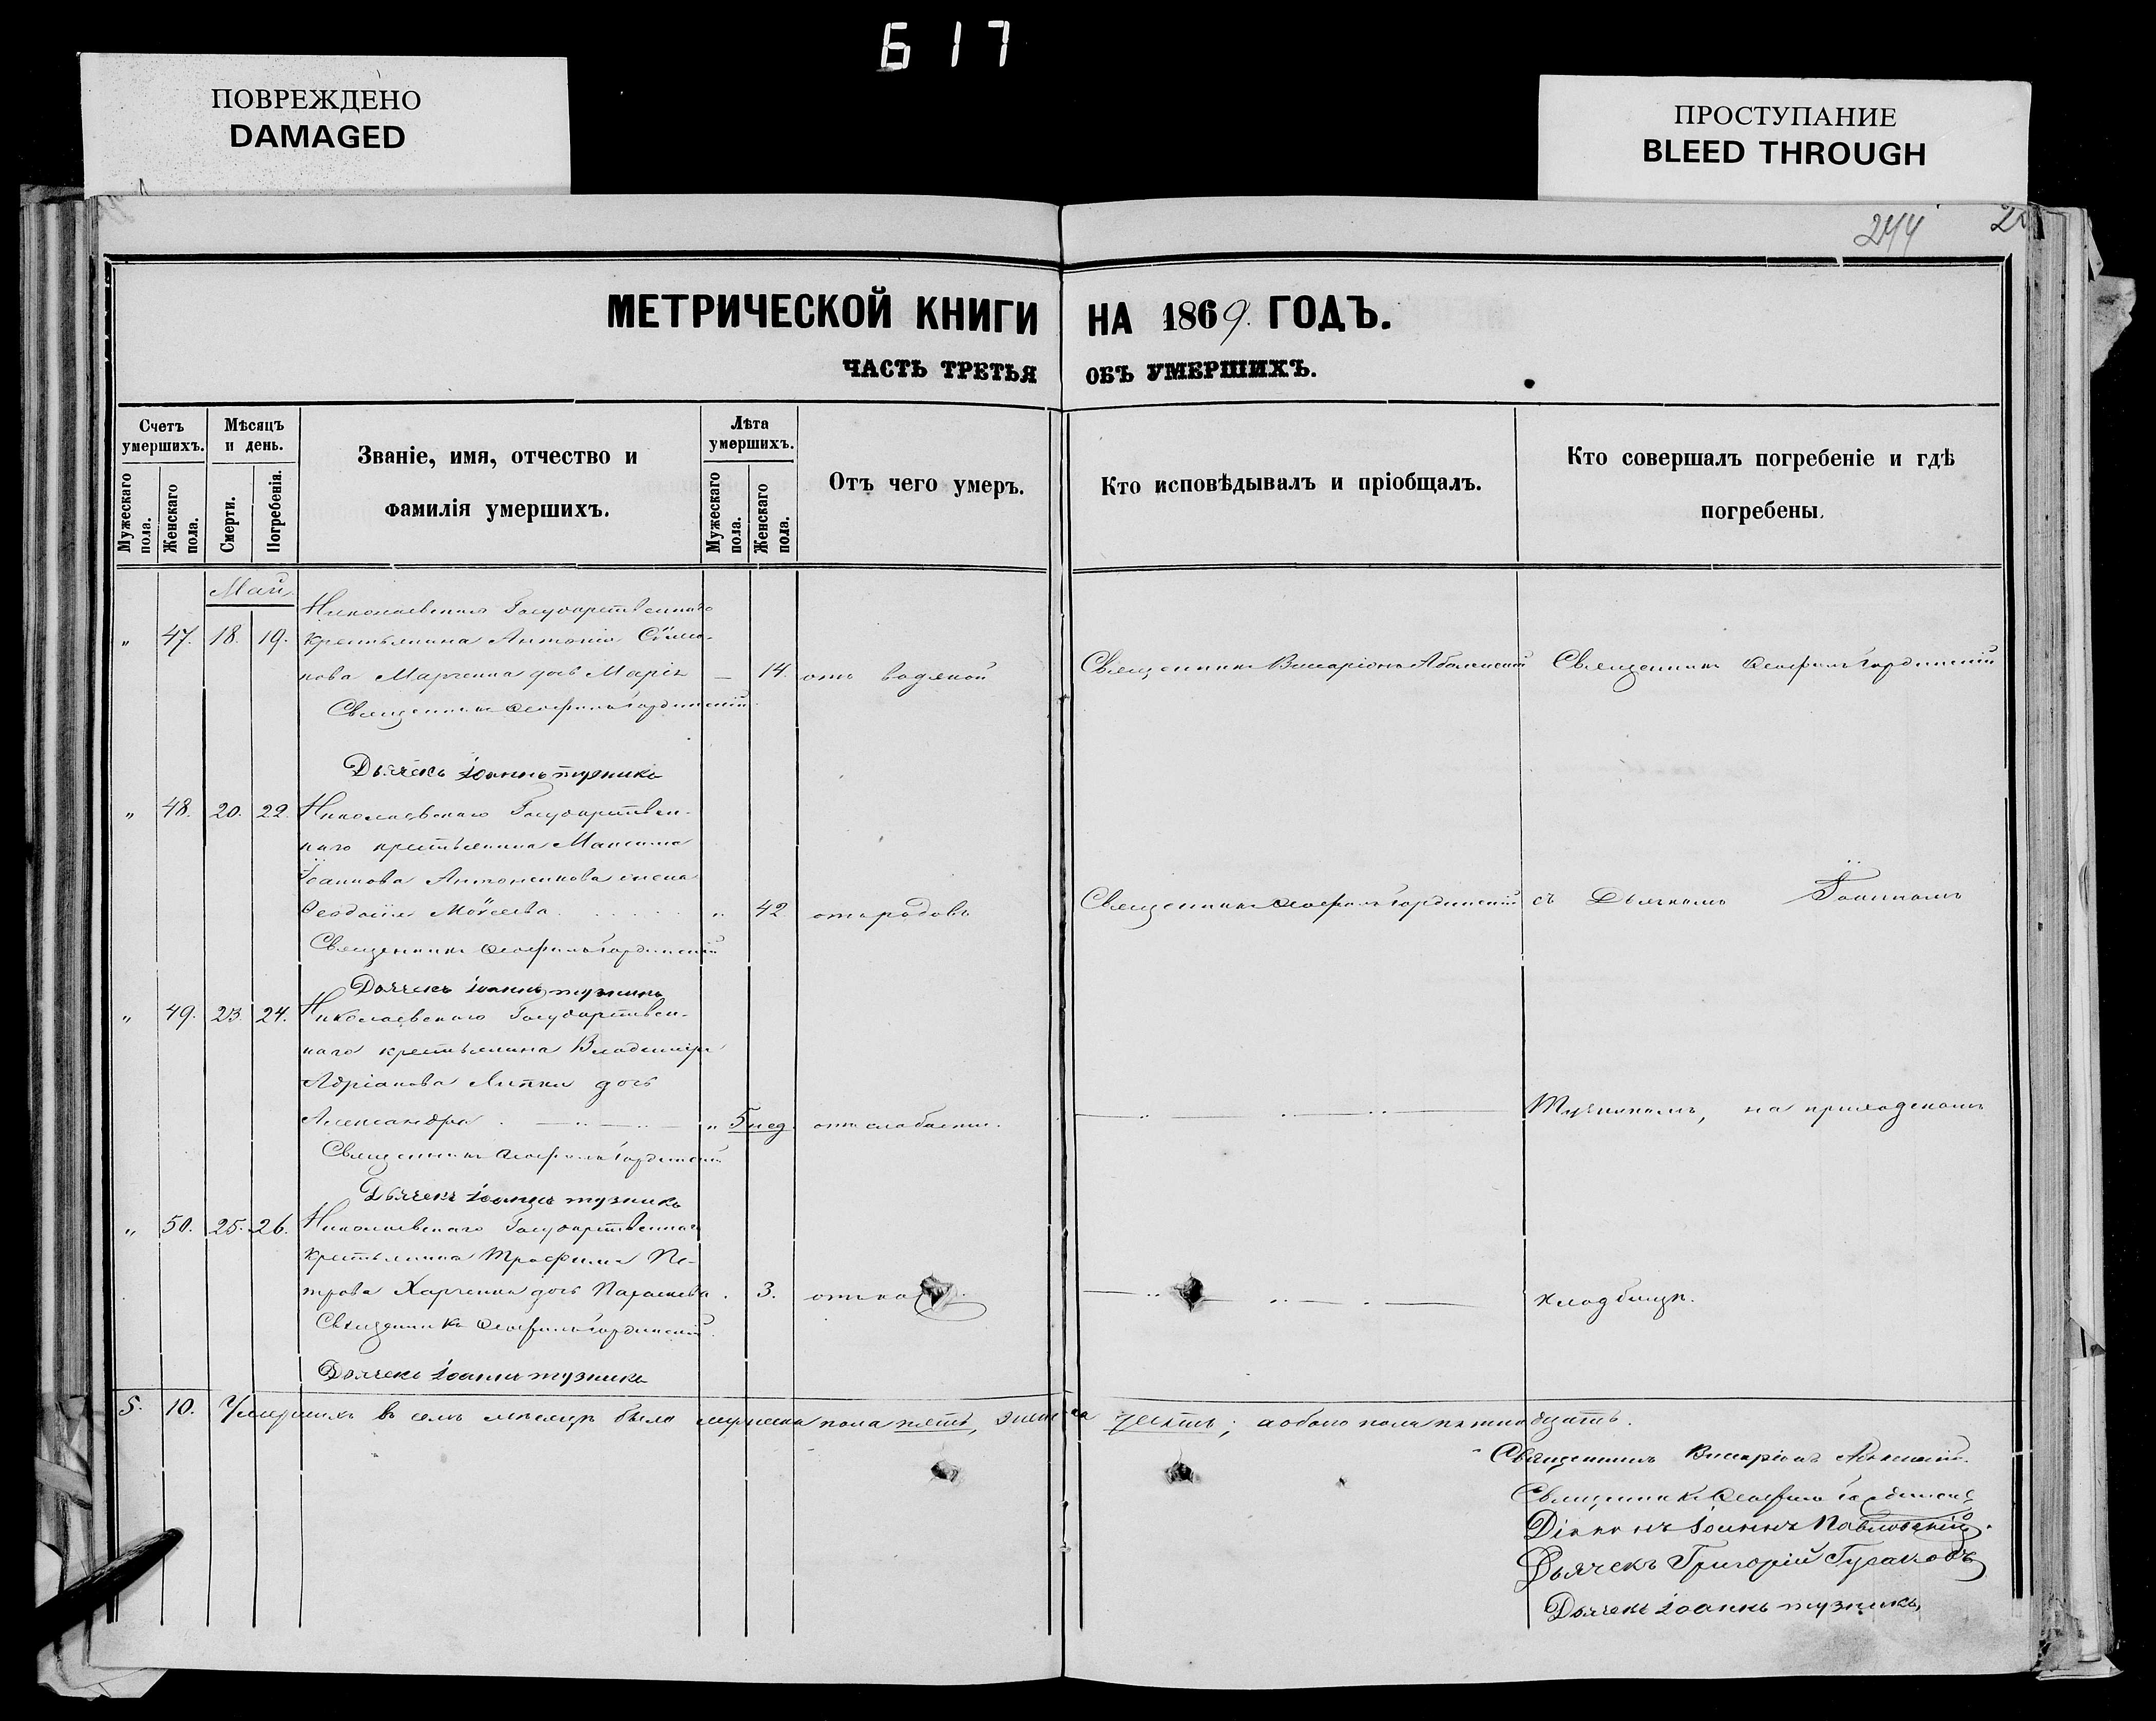 617
ПОВРЕЖДЕНО
DAMAGED
ПРОСТУПАНИЕ
BLEED THROUGH
244
МЕТРИЧЕСКОЙ КНИГИ НА 1869. ГОДЪ.
ЧАСТЬ ТРЕТЬЯ ОБЪ УМЕРШИХЪ.
Счетъ умершихъ.
Мужескаго пола.
Женскаго пола.
Мѣсяцъ и день.
Смерти.
Погребенія.
Званіе, имя, отчество и
фамилія умершихъ.
Лѣта умершихъ.
Мужескаго пола.
Женскаго пола.
Отъ чего умеръ.
Кто исповѣдывалъ и пріобщалъ.
Кто совершалъ погребеніе и гдѣ
погребены.
Май
Николаевскаго Государственнаго
" 47. 18. 19. крестьянина Антонія Симо-
нова Марченка дочь Марія — 14. отъ водяной Священникъ Виссаріонъ Священникъ Ѳеофилъ Гординскій
Священникъ Ѳеофилъ Гординскій
Дьячекъ Іоаннъ Тузникъ
" 48. 20. 22. Николаевскаго Государствен-
наго крестьянина Максима
Іоаннова Антоненкова жена
Ѳеодосія Моѵсеева " 42 отъ родовъ Священникъ Ѳеофилъ Гординскій съ Дьячкомъ Іоанномъ
Священникъ Ѳеофилъ Гординскій
Дьячекъ Іоаннъ Тузникъ
" 49. 23. 24. Николаевскаго Государствен-
наго крестьянина Владиміра
Адріанова Липки дочь
Александра " 5 нед. отъ слабости. Тузникомъ, на приходскомъ
Священникъ Ѳеофилъ Гординскій
Дьячекъ Іоаннъ Тузникъ
" 50. 25. 26. Николаевскаго Государственнаго
крестьянина Трофима Пе-
трова Харченка дочь Параскева 3. отъ кладбищѣ.
Священникъ Ѳеофилъ Гординскій
Дьячекъ Іоаннъ Тузникъ
5. 10. Умершихъ въ семъ мѣсяцѣ было мужеска пола пять, женска десять; а обоего пола пятнадцать.
Священникъ Виссаріонъ
Священникъ Ѳеофилъ Гординскій
Діаконъ Іоаннъ Павловскій.
Дьячекъ Григорій Гусаковъ
Дьячекъ Іоаннъ Тузникъ,